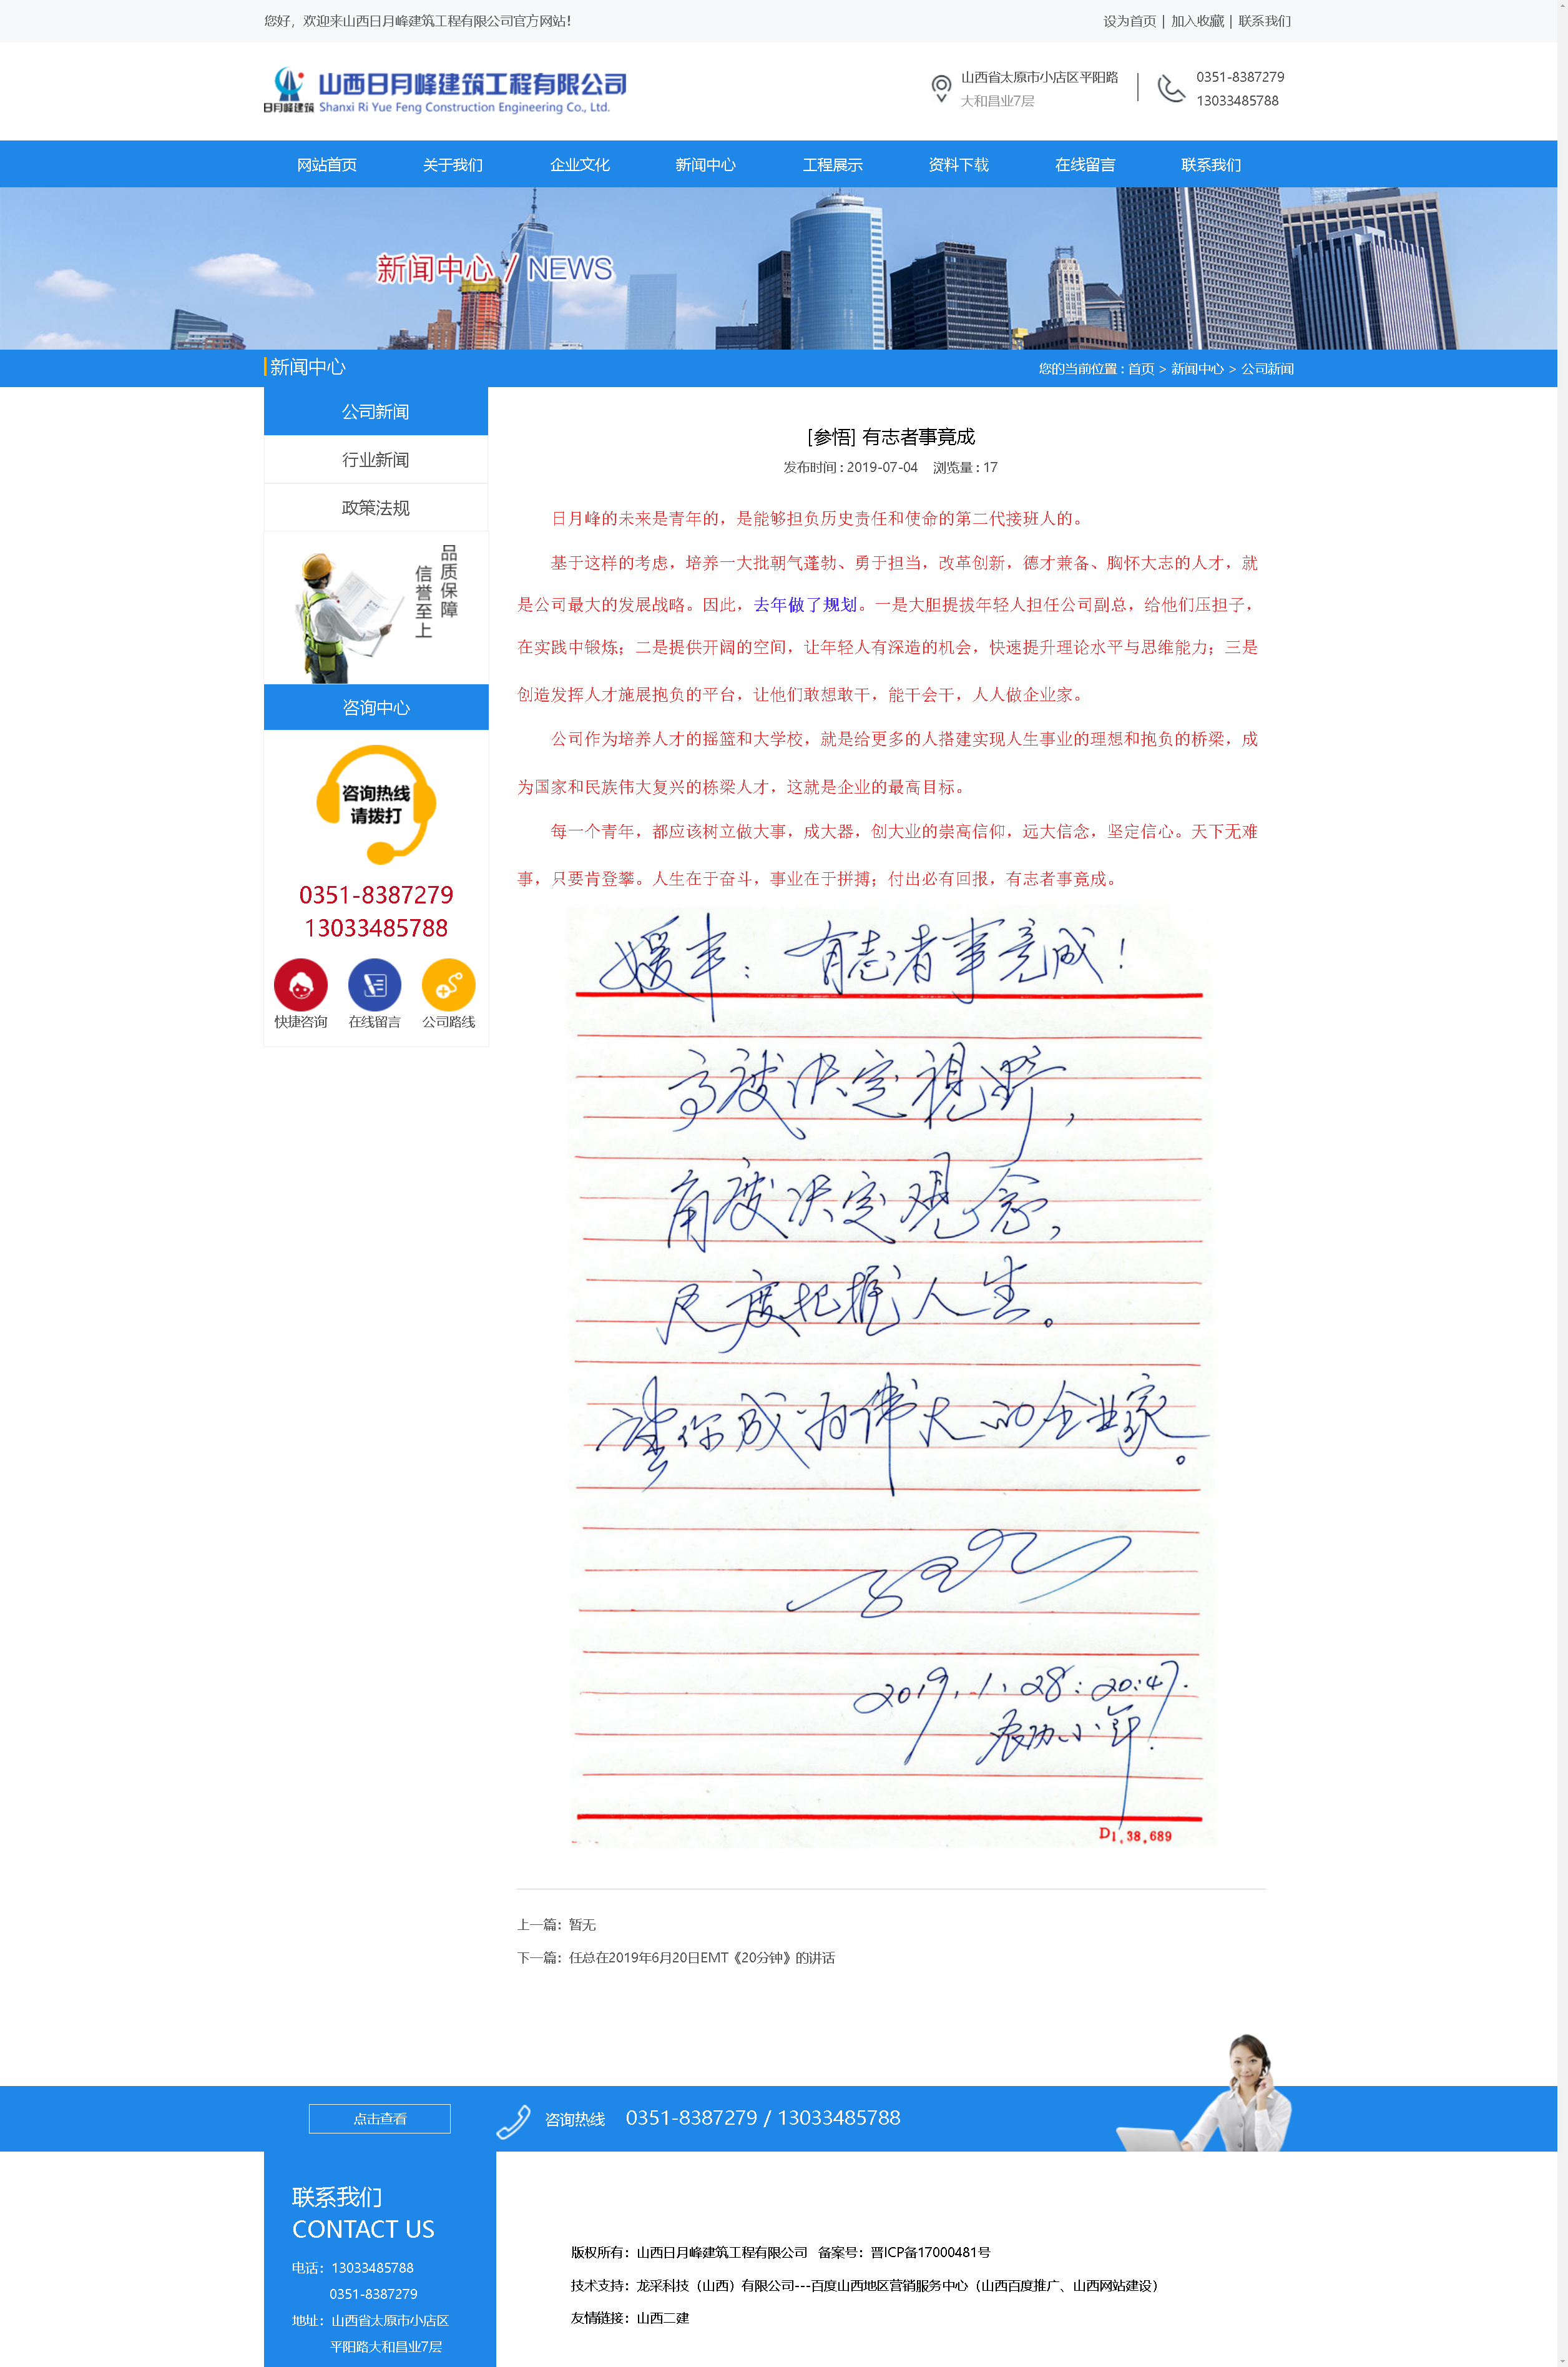 您好，欢迎来山西日月峰建筑工程有限公司官方网站！
设为首页 | 加入收藏 | 联系我们
日月峰建筑
山西日月峰建筑工程有限公司
Shanxi Ri Yue Feng Construction Engineering Co., Ltd.
山西省太原市小店区平阳路
大和昌业7层
0351-8387279
13033485788
网站首页 关于我们 企业文化 新闻中心 工程展示 资料下载 在线留言 联系我们
新闻中心 / NEWS
新闻中心
您的当前位置 : 首页 > 新闻中心 > 公司新闻
公司新闻
行业新闻
政策法规
品质保障
信誉至上
咨询中心
咨询热线
请拨打
0351-8387279
13033485788
快捷咨询 在线留言 公司路线
[参悟] 有志者事竟成
发布时间 : 2019-07-04 浏览量 : 17
日月峰的未来是青年的，是能够担负历史责任和使命的第二代接班人的。
基于这样的考虑，培养一大批朝气蓬勃、勇于担当，改革创新，德才兼备、胸怀大志的人才，就
是公司最大的发展战略。因此，去年做了规划。一是大胆提拔年轻人担任公司副总，给他们压担子，
在实践中锻炼；二是提供开阔的空间，让年轻人有深造的机会，快速提升理论水平与思维能力；三是
创造发挥人才施展抱负的平台，让他们敢想敢干，能干会干，人人做企业家。
公司作为培养人才的摇篮和大学校，就是给更多的人搭建实现人生事业的理想和抱负的桥梁，成
为国家和民族伟大复兴的栋梁人才，这就是企业的最高目标。
每一个青年，都应该树立做大事，成大器，创大业的崇高信仰，远大信念，坚定信心。天下无难
事，只要肯登攀。人生在于奋斗，事业在于拼搏；付出必有回报，有志者事竟成。
媛丰：有志者事竟成！
高度决定视野，
角度决定观念，
尺度把握人生。
望你成为伟大的企业家。
2019.1.28：20:47.
农历小年.
D1.38.689
上一篇：暂无
下一篇：任总在2019年6月20日EMT《20分钟》的讲话
点击查看
咨询热线 0351-8387279 / 13033485788
联系我们
CONTACT US
电话：13033485788
0351-8387279
地址：山西省太原市小店区
平阳路大和昌业7层
版权所有：山西日月峰建筑工程有限公司 备案号：晋ICP备17000481号
技术支持：龙采科技（山西）有限公司---百度山西地区营销服务中心（山西百度推广、山西网站建设）
友情链接：山西二建